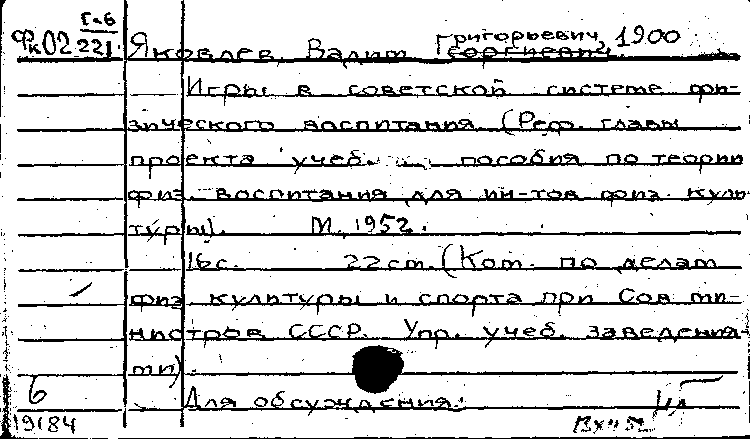 Г-6
Фк02 221.
Яковлев, Вадим Григорьевич, 1900
Георгиевич
Игры в советской системе фи-
зического воспитания (Реф. главы
проекта учеб. пособия по теории
физ. воспитания для ин-тов физ. куль-
туры). М., 1952.
16с. 22 см. (Ком. по делам
физ. культуры и спорта при Сов ми-
нистров СССР. Упр. учеб. заведения-
ми).
Для обсуждения.
6
19184